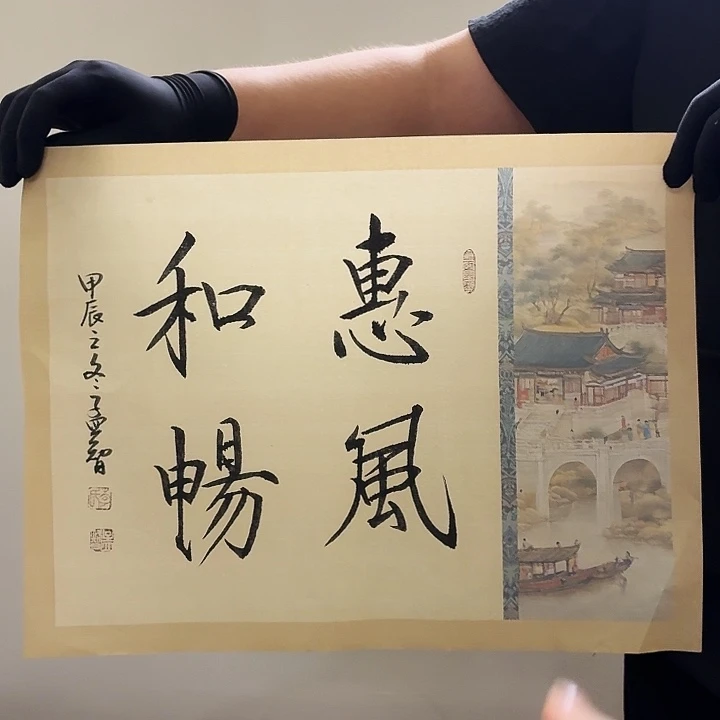 惠風
和暢
甲辰之冬